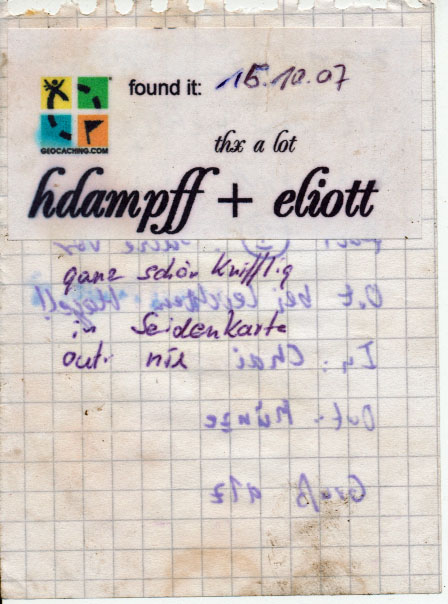 GEOCACHING.COM
found it: 15.10.07
thx a lot
hdampff + eliott
ganz schön knifflig
in Seidenkarte
out: nix
In: Chai
Out: Münze
Gruß